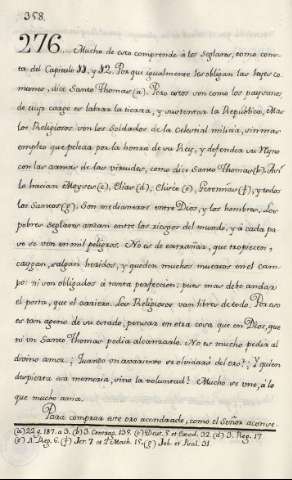 358.
276... Mucho de esto comprende à los seglares, como cons-
ta del Capitulo 11, y 12. Porque igualmente les obligan las leyes co-
munes, dice Santo Thomas (a). Pero estos son como los paysanos,
de cuyo cargo es labrar la tierra, y sustentar la República. Mas
los Religiosos son los Soldados de la celestial milicia, sin mas
empleo que pelear por la honra de su Rey, y defender su Reyno
con las armas de las virtudes, como dice Santo Thomas (b). Asi
lo hacian Moyses (c), Elias (d), Eliseo (e), Jeremias (f), y todos
los Santos (g). Son medianeros entre Dios, y los hombres. Los
pobres seglares andan entre los riesgos del mundo, y à cada pa-
so se ven en mil peligros. No es de extrañar, que tropiecen,
caygan, salgan heridos, y queden muchos muertos en el cam-
po: ni son obligados à tanta perfeccion; pues mas debe andar
el posta, que el carretero. Los Religiosos van libres de todo. Por eso
es tan ageno de su estado, pensar en otra cosa que en Dios, que
ni un Santo Thomas podia alcanzarlo. No es mucho pedir al
divino amor: ¿Quando un avariento se olvidará del oro? ¿Y quien
despicará su memoria, sino la voluntad? Mucho se une, à lo
que mucho ama.
Para comprar este oro acendrado, como el Señor aconse-
(a) 22. q. 187. a 3. (b) 3. Contrag. 139. (c) Deut. 9. et Exod. 32. (d) 3. Reg. 17.
(e) 4. Reg. 6. (f) Jer. 7. et 2. Mach. 15. (g) Job. et Psal. 31.